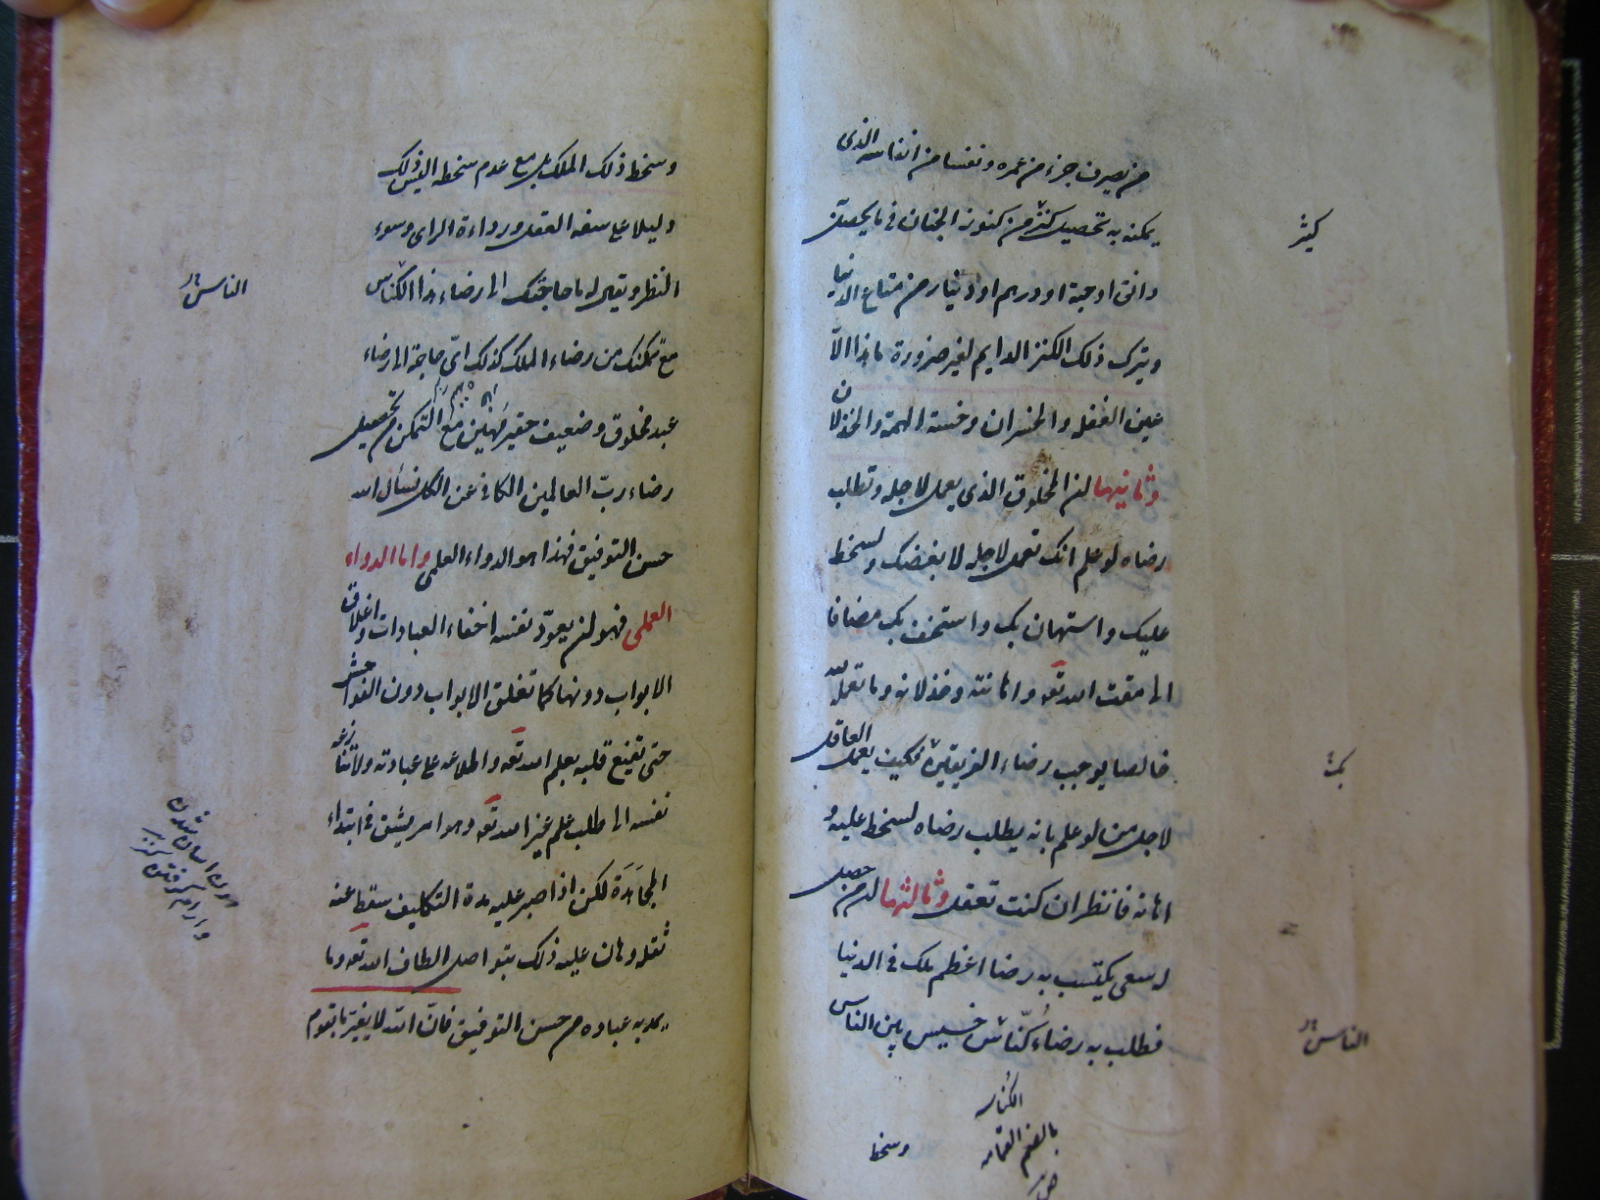 من يصرف جزء من عمره و نفسا من انفاسه الذى
يمكنه به تحصيل كنز من كنوز الجنان فى ما يحصل
دانق او حبة او درهم او دينار من متاع الدنيا
ويترك ذلك الكنز الدايم لغير ضرورة ما هذا الّا
عين الغفله والخسران وخسة الهمة والخذلان
وثانيها ان المخلوق الذى يعمل لاجله وتطلب
رضاه لو علم انك تعمل لاجله لابغضك ولسخط
عليك واستهان بك واستخف بك مضافا
الى مقت الله تعه واهانته وخذلانه وما تعمل لله
خالصا يوجب رضاء الفريقين فكيف يعمل العاقل
لاجل من لو علم بانه يطلب رضاه لسخط عليه و
اهانه فانظر ان كنت تعقل وثالثها ان من حصل
له سعى يكتسب به رضا اعظم ملك فى الدنيا
فطلب به رضاء كنّاس خسيس بين الناس
الناس
الكناسه
بالضم القمامه
وسخط
وسخط ذلك الملك بل مع عدم سخطه اليس ذلك
دليلا على سفه العقل و رداءة الراى وسوء
النظر ويقال له ما حاجتك الى رضاء هذا الكناس
الناس
مع تمكنك من رضاء الملك كذلك اىّ حاجة الى رضاء
عبد مخلوق وضعيف حقير مهين مع التمكن من تحصيل
رضاء ربّ العالمين الكافى عن الكل نسأل الله
حسن التوفيق فهذا هو الدواء العلمى واما الدواء
العملى فهو ان يعوّد نفسه اخفاء العبادات واغلاق
الابواب دونها كما تغلق الابواب دون الفواحش
حتى يقنع قلبه بعلم الله تعه واطلاعه على عبادته ولا تنازعه
نفسه الى طلب علم غير الله تعه وهو امر يشق فى ابتداء
المجاهدة لكن اذا صبر عليه مدة التكليف سقط عنه
ثقله وهان عليه ذلك بتواصل الطاف الله تعه وما
يمد به عباده من حسن التوفيق فانّ الله لا يغير ما بقوم